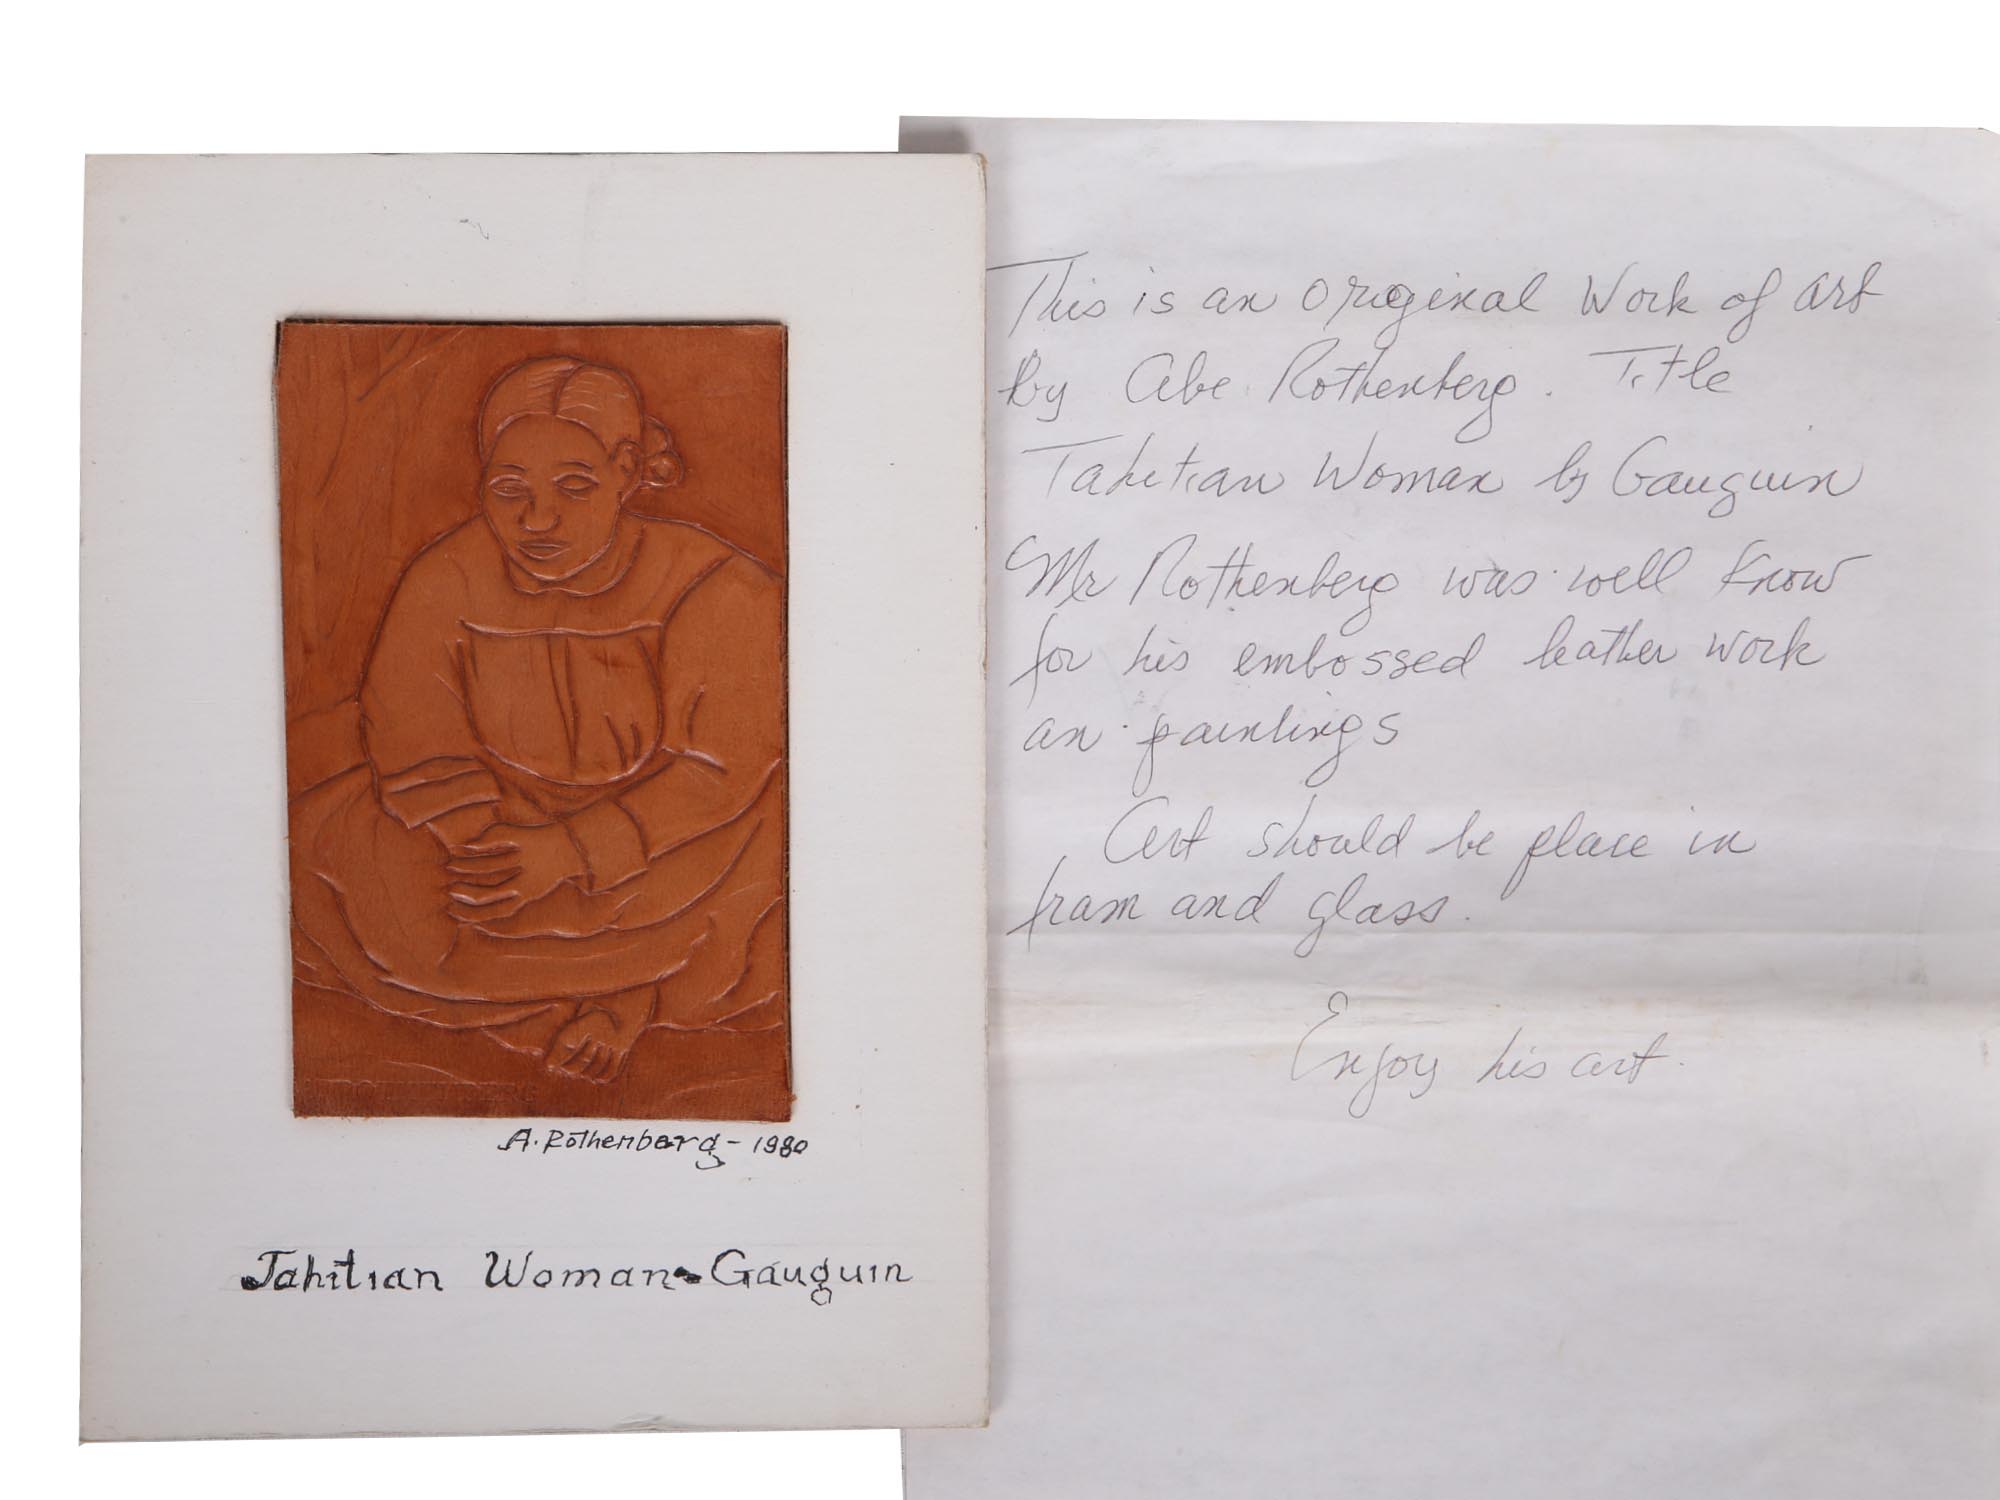 A. Rothenberg - 1980
Tahitian Woman - Gauguin
This is an original Work of art
By Abe Rothenberg. Title
Tahitian Woman by Gauguin
Mr Rothenberg was well know
for his embossed leather work
an paintings
Art should be place in
fram and glass.
Enjoy his art.